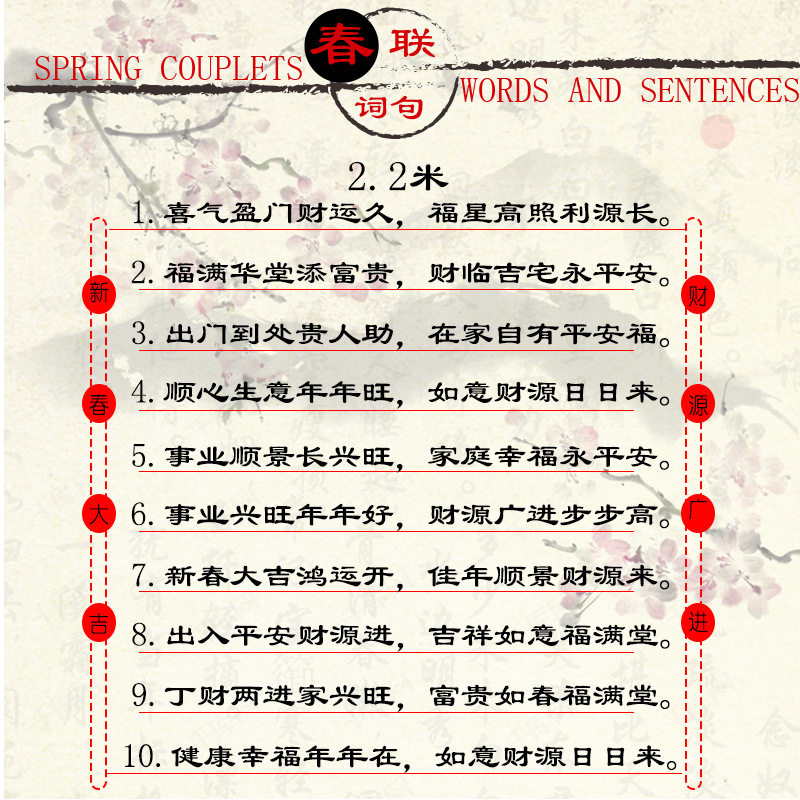 SPRING COUPLETS
春联
词句
WORDS AND SENTENCES
2.2米
1.喜气盈门财运久，福星高照利源长。
2.福满华堂添富贵，财临吉宅永平安。
3.出门到处贵人助，在家自有平安福。
4.顺心生意年年旺，如意财源日日来。
5.事业顺景长兴旺，家庭幸福永平安。
6.事业兴旺年年好，财源广进步步高。
7.新春大吉鸿运开，佳年顺景财源来。
8.出入平安财源进，吉祥如意福满堂。
9.丁财两进家兴旺，富贵如春福满堂。
10.健康幸福年年在，如意财源日日来。
新春大吉
财源广进